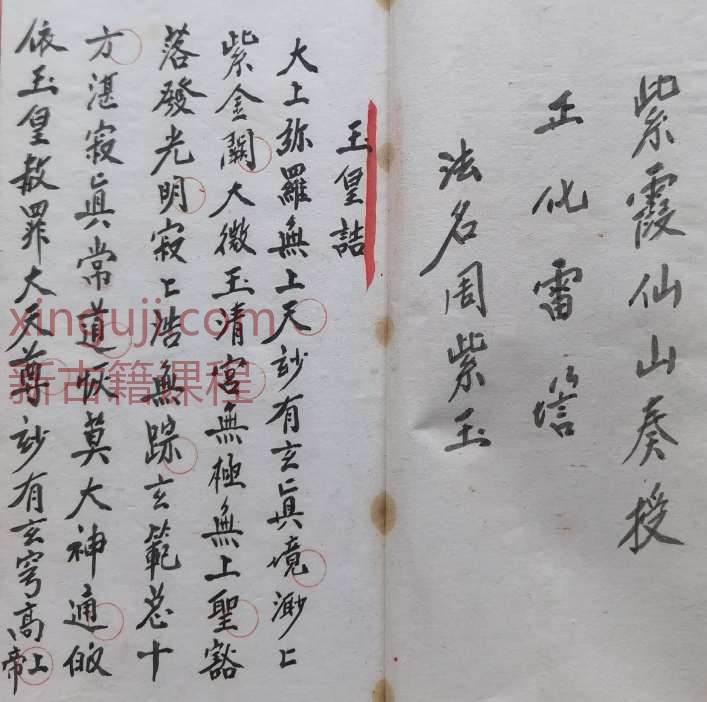 紫霞仙山奏授
正化雷坛
法名周紫玉
玉皇誥
大上弥羅無上天玅有玄眞境渺〻
紫金闕大微玉清宮無極無上聖豁
落發光明寂〻浩無踪玄範总十
方湛寂眞常道恢莫大神通皈
依玉皇赦罪大天尊玅有玄穹高上帝
xinguji.com
新古籍課程